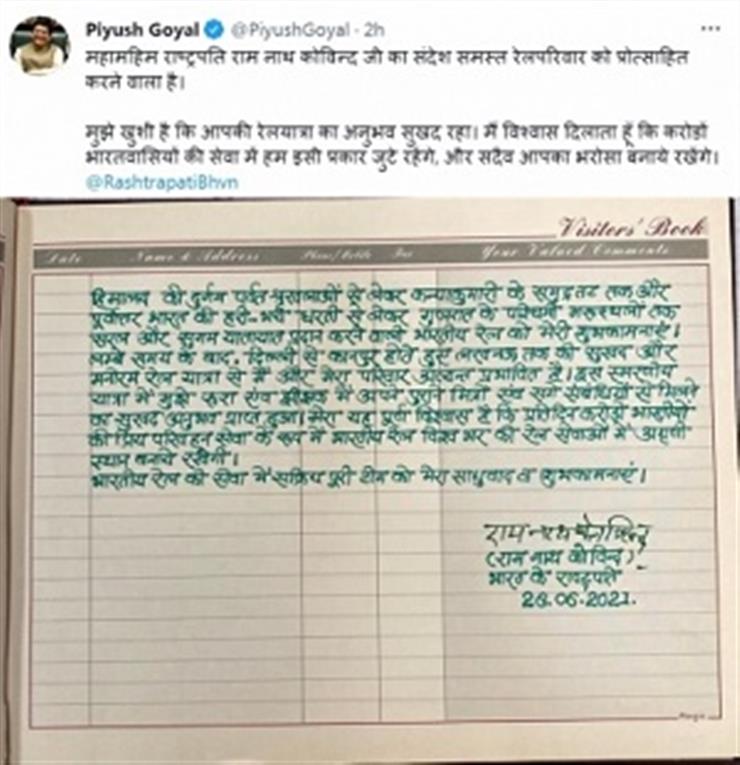 Piyush Goyal @PiyushGoyal · 2h
महामहिम राष्ट्रपति राम नाथ कोविन्द जी का संदेश समस्त रेलपरिवार को प्रोत्साहित
करने वाला है।
मुझे खुशी है कि आपकी रेलयात्रा का अनुभव सुखद रहा। मैं विश्वास दिलाता हूँ कि करोड़ों
भारतवासियों की सेवा में हम इसी प्रकार जुटे रहेंगे, और सदैव आपका भरोसा बनाये रखेंगे।
@RashtrapatiBhvn
Visitors' Book
Date Name & Address Your Valued Comments
हिमालय की दुर्गम पर्वत श्रृंखलाओं से लेकर कन्याकुमारी के समुद्रतट तक और
पूर्वोत्तर भारत की हरी-भरी धरती से लेकर गुजरात के पश्चिमी मरुस्थलों तक
सरल और सुगम यातायात प्रदान करने वाली भारतीय रेल को मेरी शुभकामनाएं।
लम्बे समय के बाद, दिल्ली से कानपुर होते हुए लखनऊ तक की सुखद और
मनोरम रेल यात्रा से मैं और मेरा परिवार अत्यन्त प्रभावित है। इस स्मरणीय
यात्रा में मुझे रूरा एवं झींझक में अपने पुराने मित्रों एवं सगे संबंधियों से मिलने
का सुखद अनुभव प्राप्त हुआ। मेरा यह पूर्ण विश्वास है कि प्रतिदिन करोड़ों भारतीयों
की प्रिय परिवहन सेवा के रूप में भारतीय रेल विश्व भर की रेल सेवाओं में अग्रणी
स्थान बनाये रखेगी।
भारतीय रेल की सेवा में सक्रिय पूरी टीम को मेरा साधुवाद व शुभकामनाएं।
राम नाथ कोविन्द
(राम नाथ कोविन्द)
भारत के राष्ट्रपति
28.06.2021.